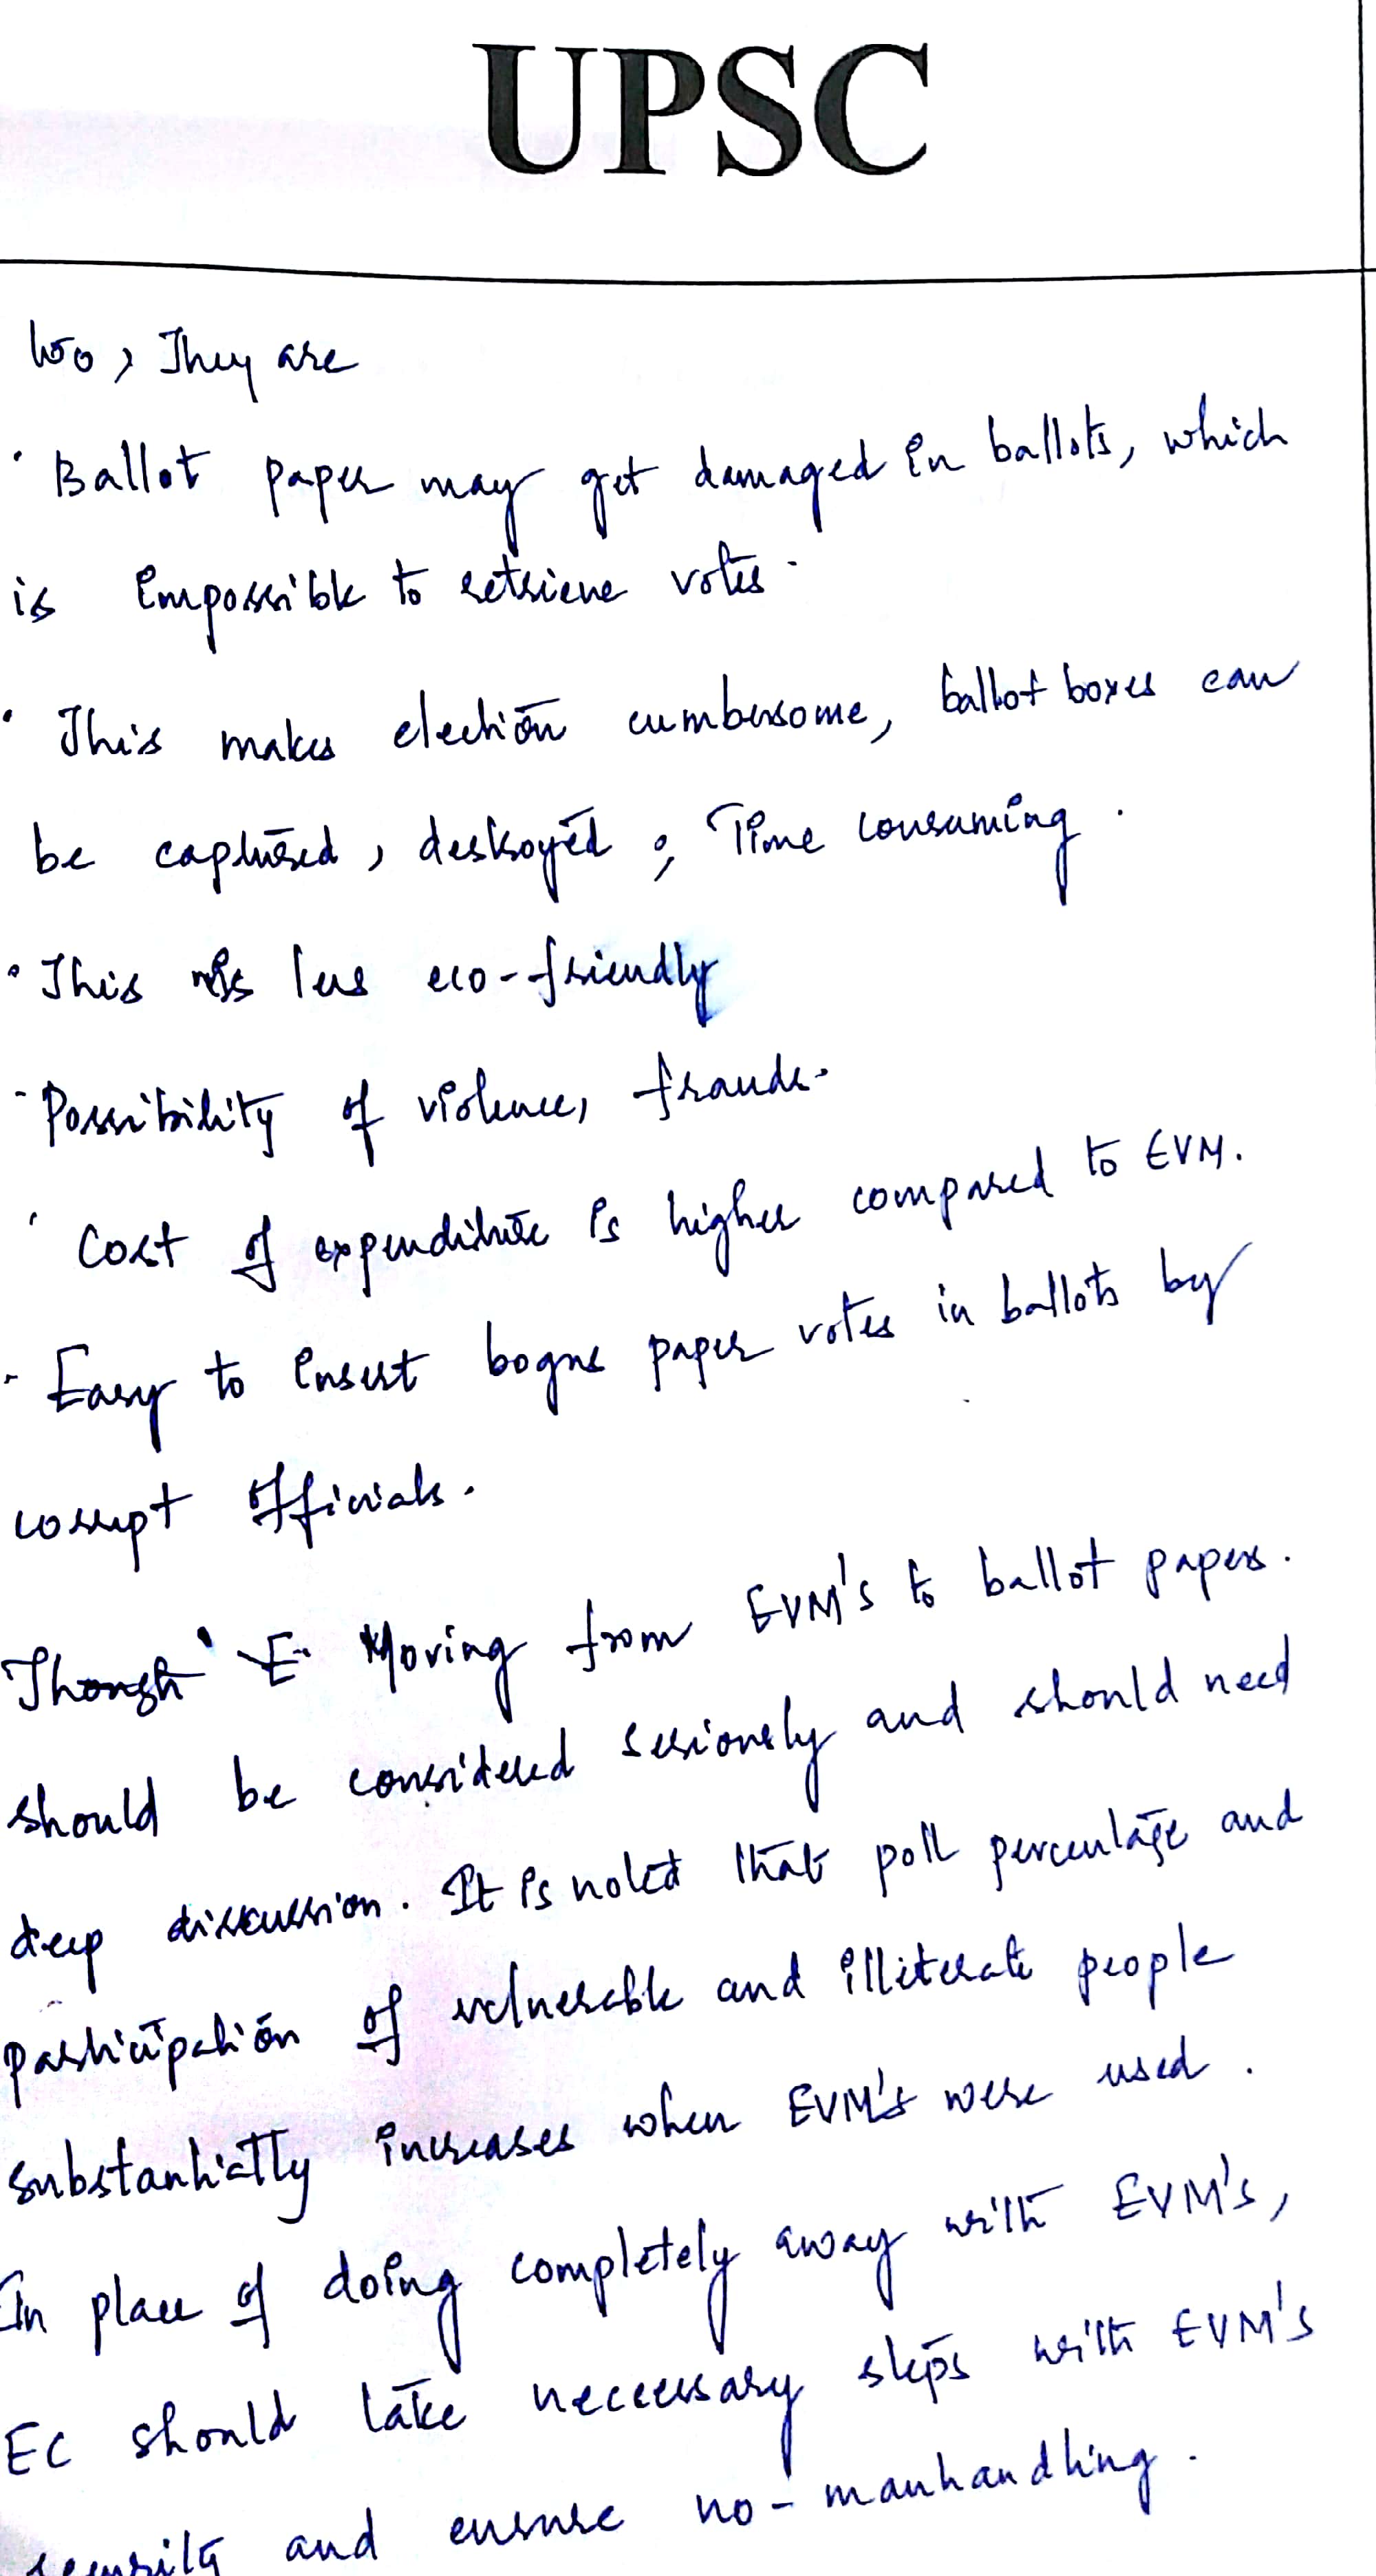 UPSC
too, They are
· Ballot paper may get damaged in ballots, which
is impossible to retrieve votes.
· This makes election cumbersome, ballot boxes can
be captured, destroyed, Time consuming.
· This is less eco-friendly
- Possibility of violence, frauds.
· Cost of expenditure is higher compared to EVM.
- Easy to insert bogus paper votes in ballots by
corrupt officials.
Though E Moving from EVM's to ballot papers.
should be considered seriously and should need
deep discussion. It is noted that poll percentage and
participation of vulnerable and illiterate people
substantially increases when EVM's were used.
In place of doing completely away with EVM's,
EC should take neccessary steps with EVM's
security and ensure no-manhandling.